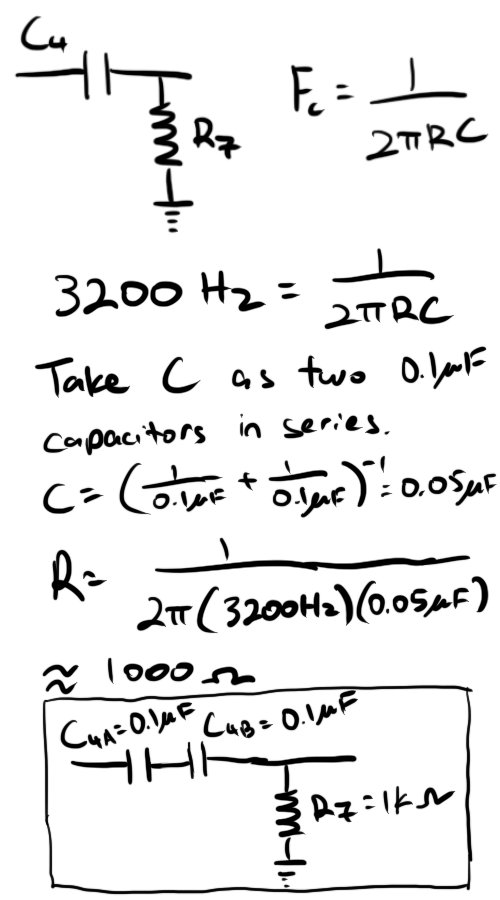 C₄
R₇
F_c = 1 / 2πRC
3200 Hz = 1 / 2πRC
Take C as two 0.1μF
capacitors in series.
C = (1/0.1μF + 1/0.1μF)⁻¹ = 0.05μF
R = 1 / 2π(3200Hz)(0.05μF)
≈ 1000 Ω
C₄A = 0.1μF C₄B = 0.1μF
R₇ = 1k Ω